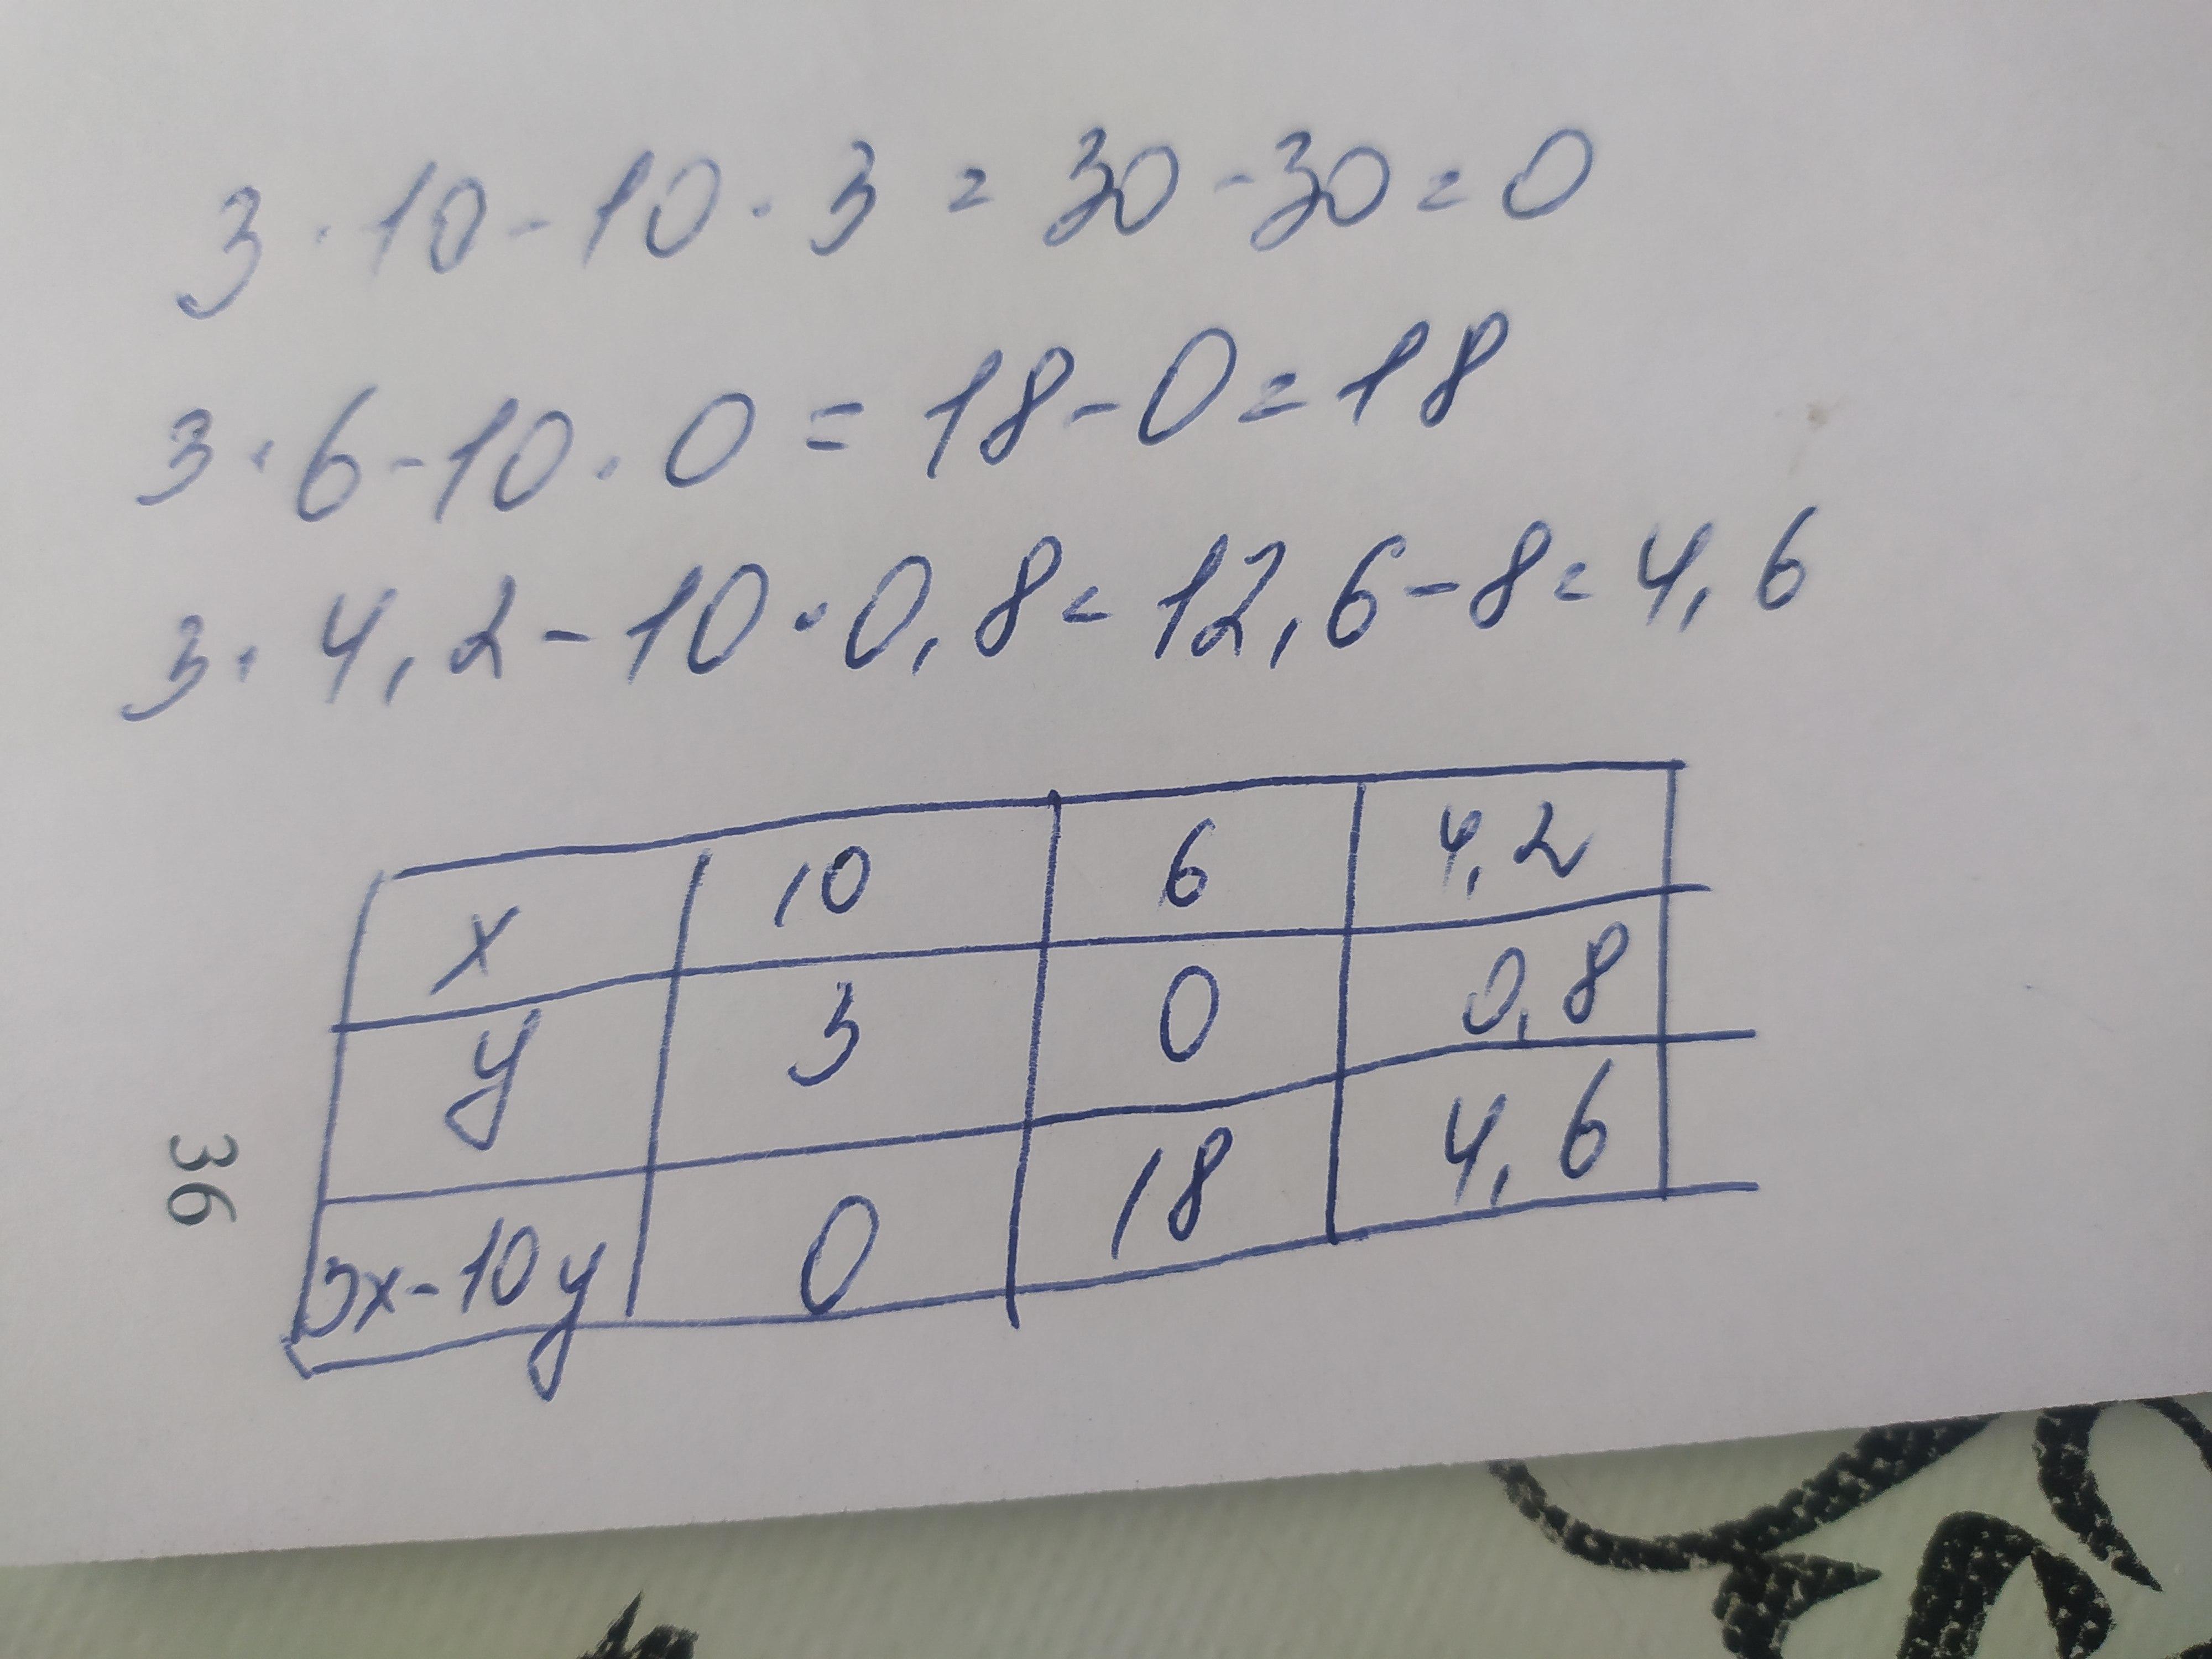 3 · 10 - 10 · 3 = 30 - 30 = 0
3 · 6 - 10 · 0 = 18 - 0 = 18
3 · 4,2 - 10 · 0,8 = 12,6 - 8 = 4,6
x 10 6 4,2
y 3 0 0,8
3x - 10y 0 18 4,6
36